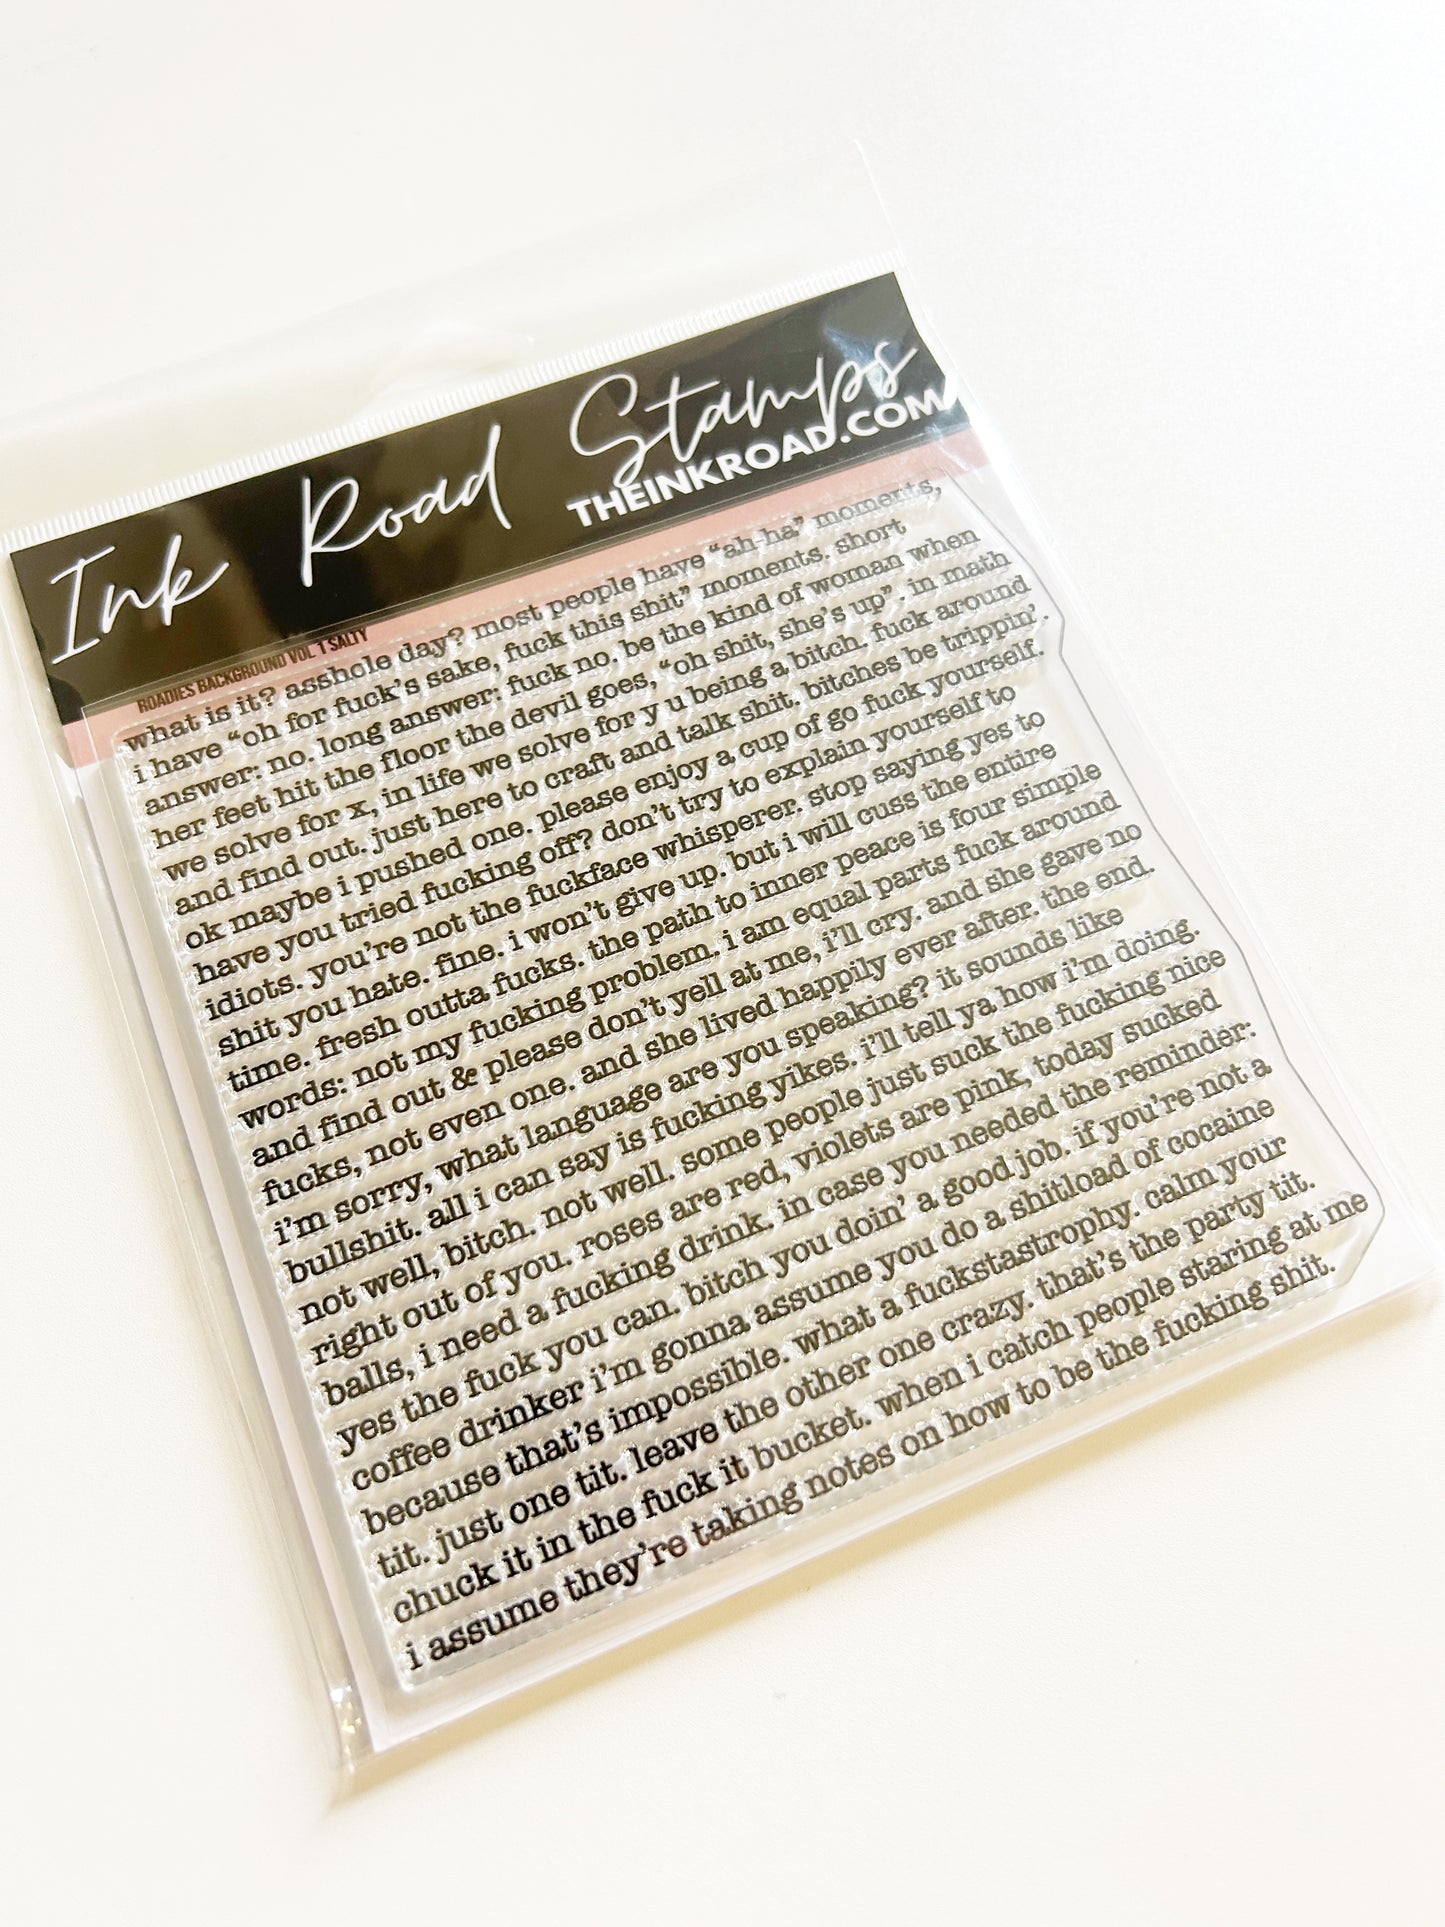 Ink Road Stamps
THEINKROAD.COM
ROADIES BACKGROUND VOL 1 SALTY
what is it? asshole day? most people have “ah-ha” moments,
i have “oh for fuck’s sake, fuck this shit” moments. short
answer: no. long answer: fuck no. be the kind of woman when
her feet hit the floor the devil goes, “oh shit, she’s up”. in math
we solve for x, in life we solve for y u being a bitch. fuck around
and find out. just here to craft and talk shit. bitches be trippin’.
ok maybe i pushed one. please enjoy a cup of go fuck yourself.
have you tried fucking off? don’t try to explain yourself to
idiots. you’re not the fuckface whisperer. stop saying yes to
shit you hate. fine. i won’t give up. but i will cuss the entire
time. fresh outta fucks. the path to inner peace is four simple
words: not my fucking problem. i am equal parts fuck around
and find out & please don’t yell at me, i’ll cry. and she gave no
fucks, not even one. and she lived happily ever after. the end.
i’m sorry, what language are you speaking? it sounds like
bullshit. all i can say is fucking yikes. i’ll tell ya how i’m doing.
not well, bitch. not well. some people just suck the fucking nice
right out of you. roses are red, violets are pink, today sucked
balls, i need a fucking drink. in case you needed the reminder:
yes the fuck you can. bitch you doin’ a good job. if you’re not a
coffee drinker i’m gonna assume you do a shitload of cocaine
because that’s impossible. what a fuckstastrophy. calm your
tit. just one tit. leave the other one crazy. that’s the party tit.
chuck it in the fuck it bucket. when i catch people staring at me
i assume they’re taking notes on how to be the fucking shit.